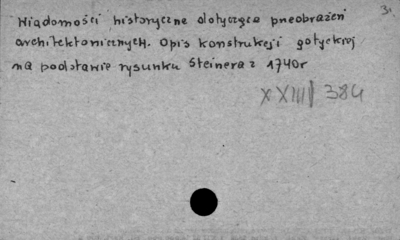 3.
Wiadomości historyczne dotyczące pneobrażeń
architektonicznych. Opis konstrukcji gotyckiej
na podstawie rysunku Steinera z 1740r
XXIII 384